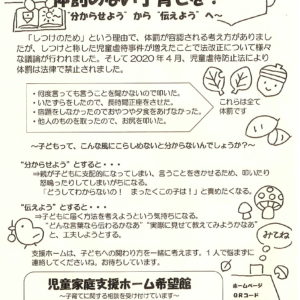 体罰のない子育てを！
“分からせよう”から“伝えよう”へ～
「しつけのため」という理由で、体罰が容認される考え方がありまし
たが、しつけと称した児童虐待事件が増えたことで法改正について様々
な議論が行われました。そして2020年4月、児童虐待防止法により
体罰は法律で禁止されました。
・何度言っても言うことを聞かないので叩いた。
・いたずらをしたので、長時間正座をさせた。
・宿題をしなかったのでおやつや夕食をあげなかった。
・他人のものを取ったので、お尻を叩いた。
これらは全て
体罰です
～子どもって、こんな風にこらしめないと分からないんでしょうか？～
“分からせよう”とすると・・・
⇒親が子どもに支配的になってしまい、言うことをきかせるため、叩いたり
怒鳴ったりしてしまいがちになる。
「どうしてわからないの！　まったくこの子は！」と責めたくなる。
“伝えよう”とすると・・・
⇒子どもに届く方法を考えようという気持ちになる。
“どんな言葉なら伝わるかなあ”“実際に見せて教えてみようかなあ”
と、工夫しようとする。
みてね
支援ホームは、子どもへの関わり方を一緒に考えます。1人で悩まずに
連絡してくださいね。お待ちしています。
児童家庭支援ホーム希望館
～子育てに関する相談を受け付けています～
ホームページ
QRコード